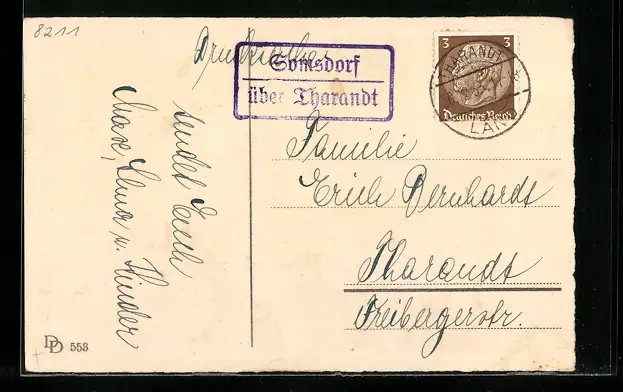 8211
Drucksache
Somsdorf
über Tharandt
3 3
THARANDT
LAND
Deutsches Reich
sendet Euch
Max, Lena u. Kinder
Familie
Erich Bernhardt
Tharandt
Freibergerstr.
DD 553